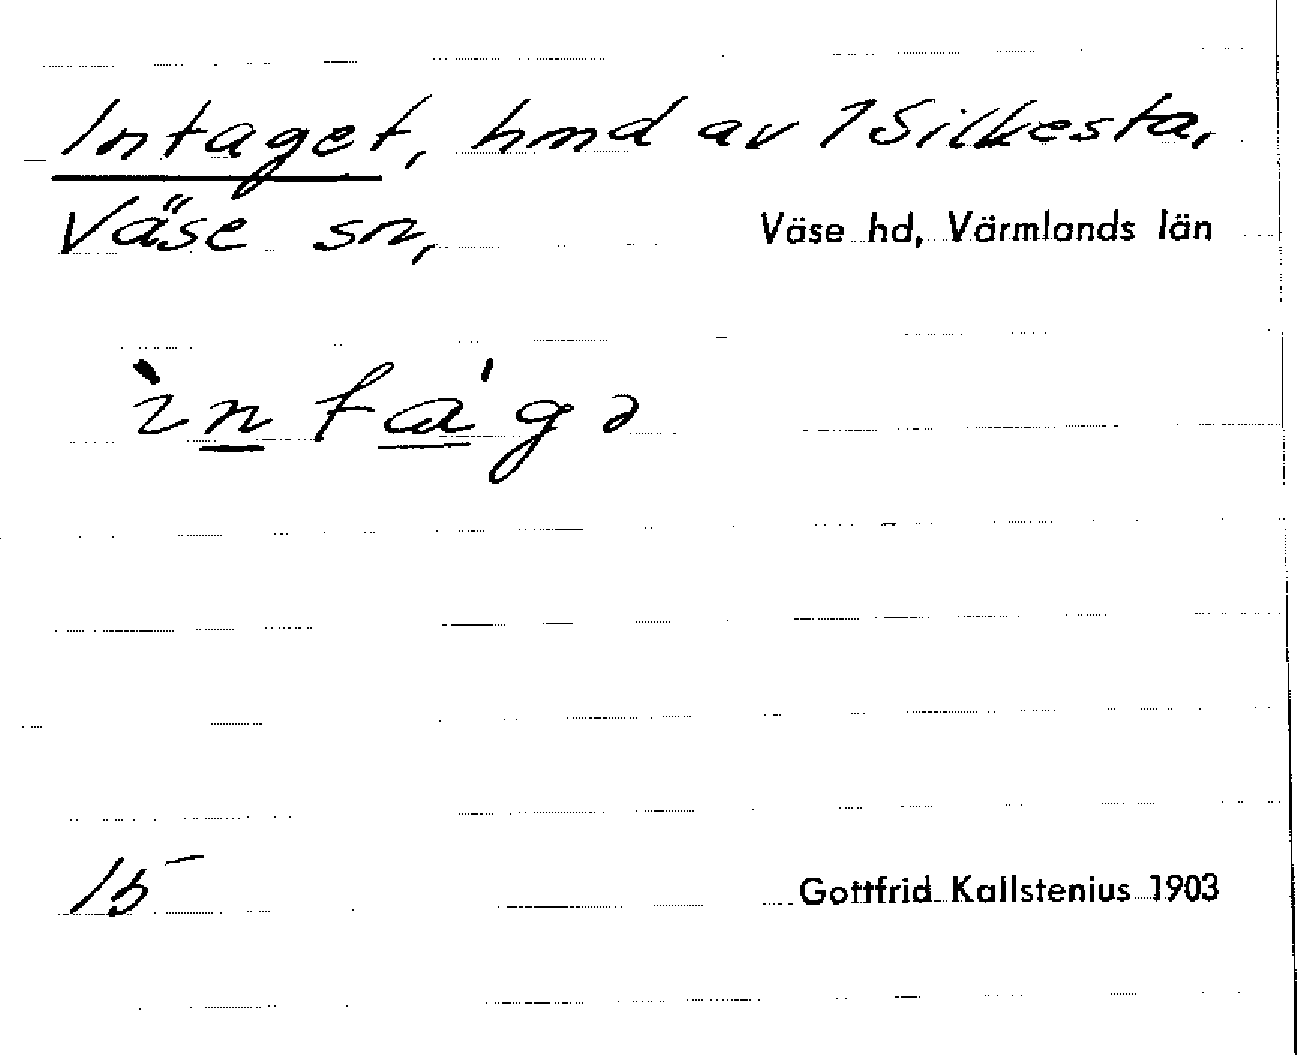 Intaget, hmd av 1 Silkesta,
Väse sn, Väse hd, Värmlands län
ìntágə
15
Gottfrid Kallstenius 1903